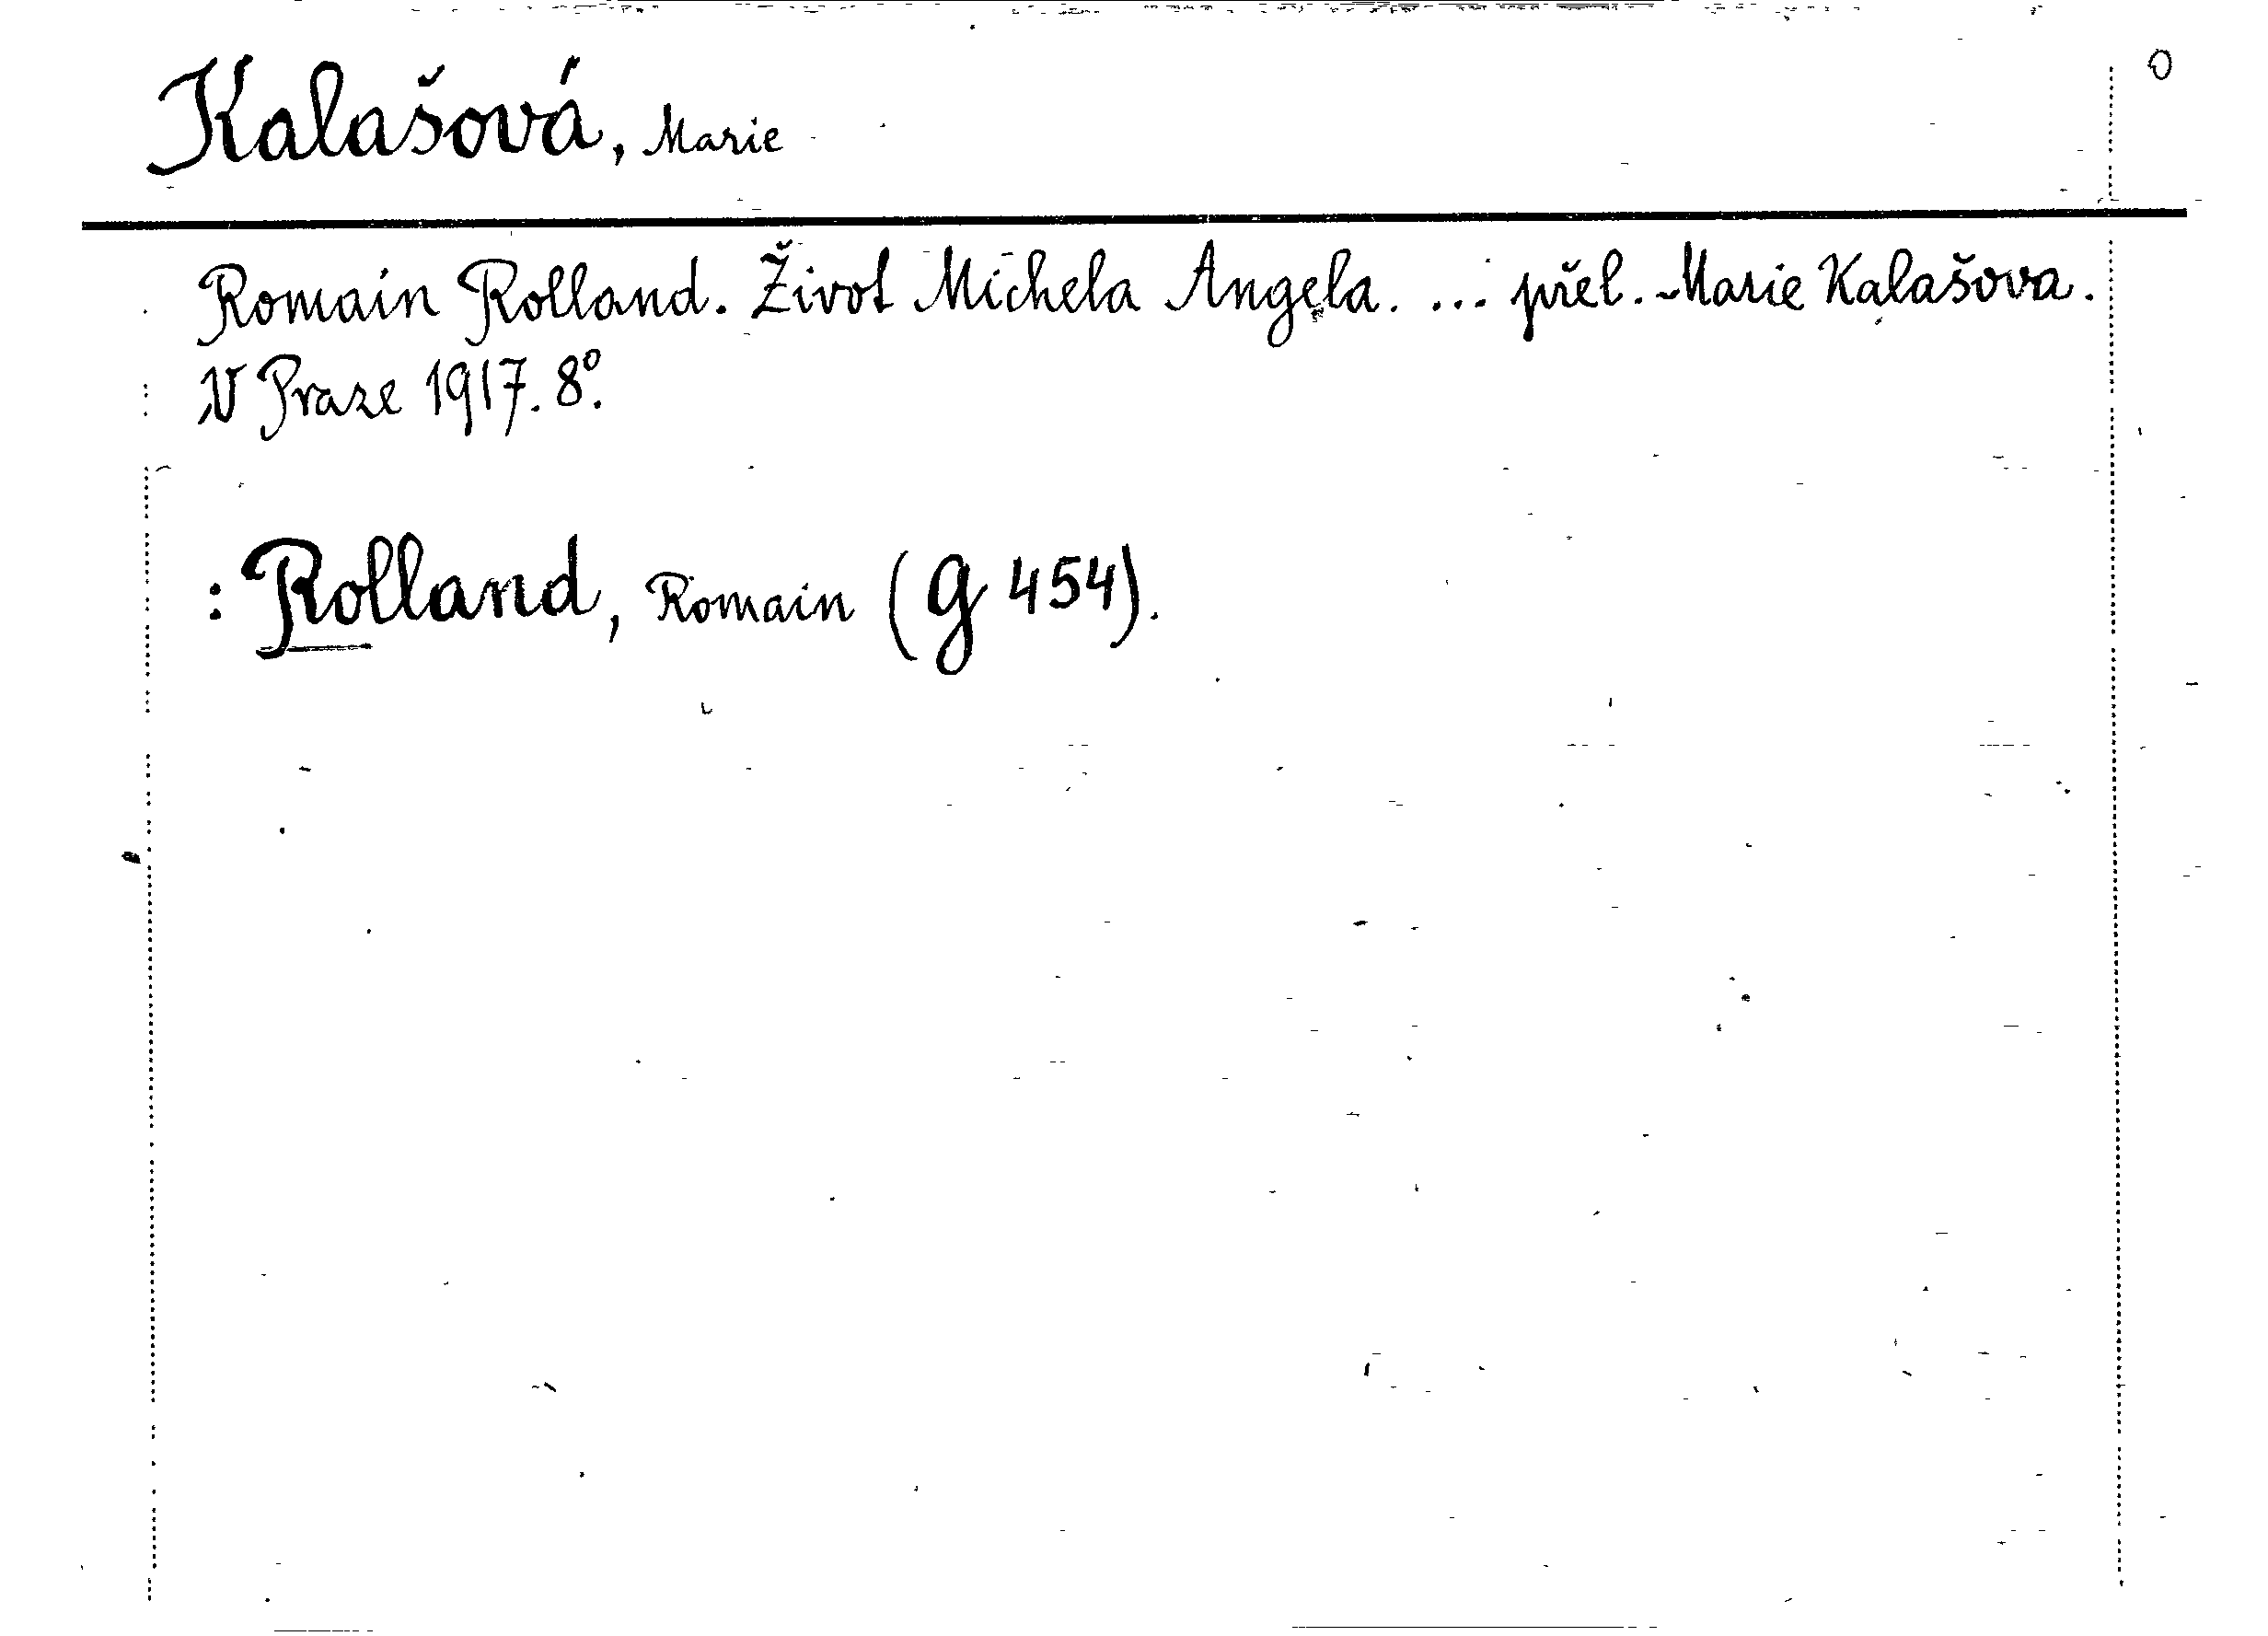 0
Kalašová, Marie
Romain Rolland. Život Michela Angela. ... přel. Marie Kalašova.
V Praze 1917. 8°.
: Rolland, Romain (g 454).